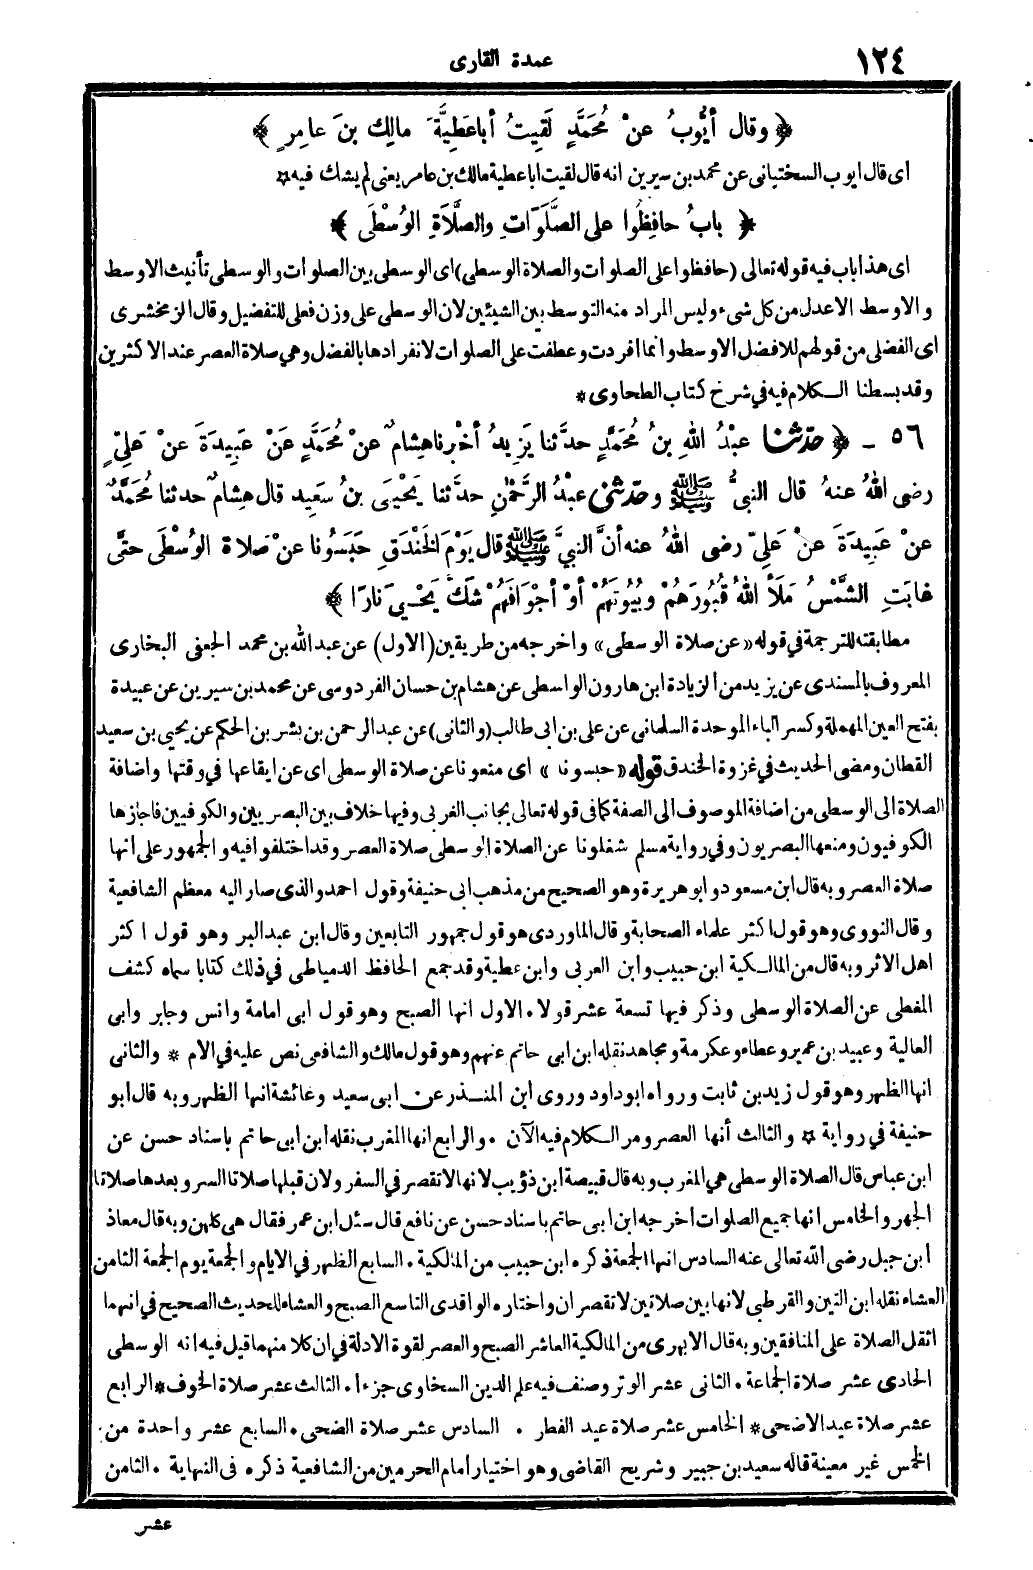 ١٢٤
عمدة القارى
﴿ وقال أيُّوبُ عنْ مُحَمَّدٍ لَقِيتُ أباعَطِيَّةَ مالِكَ بنَ عامِرٍ ﴾
اى قال ايوب السختيانى عن محمد بن سيرين انه قال لقيت اباعطية مالك بن عامر يعنى لم يشك فيه *
﴿ بابُ حافِظُوا على الصَّلَوَاتِ والصَّلَاةِ الوُسْطَى ﴾
اى هذا باب فيه قوله تعالى (حافظوا على الصلوات والصلاة الوسطى) اى الوسطى بين الصلوات والوسطى تأنيث الاوسط
والاوسط الاعدل من كل شىء وليس المراد منه التوسط بين الشيئين لان الوسطى على وزن فعلى للتفضيل وقال الزمخشرى
اى الفضلى من قولهم للافضل الاوسط وانما افردت وعطفت على الصلوات لانفرادها بالفضل وهي صلاة العصر عند الاكثرين
وقد بسطنا الكلام فيه في شرح كتاب الطحاوى *
٥٦ - ﴿ حدّثنا عبْدُ اللهِ بنُ مُحَمَّدٍ حدَّثنا يَزِيدُ أخْبرناهِشامٌ عنْ مُحَمَّدٍ عَنْ عَبِيدَةَ عنْ عَلِيٍّ
رضى اللهُ عنهُ قال النبيُّ ﷺ وحدّثني عبْدُ الرَّحْمٰنِ حدَّثنا يَحْيَى بنُ سَعِيد قال هِشامٌ حدثنا مُحَمَّدٌ
عنْ عَبِيدَةَ عنْ عَلِيٍّ رضى اللهُ عنه أنَّ النبيَّ ﷺ قال يَوْمَ الخَنْدَقِ حَبَسُونا عنْ صَلاةِ الوُسْطَى حتَّى
غابَتِ الشَّمْسُ مَلَأَ اللهُ قُبُورَهُمْ وبُيُوتَهُمْ أوْ أجْوَافَهُمْ شَكَّ يَحْيىَ نارًا ﴾
مطابقته للترجمة في قوله «عن صلاة الوسطى» واخرجه من طريقين (الاول) عن عبدالله بن محمد الجعفي البخارى
المعروف بالمسندى عن يزيد من الزيادة ابن هارون الواسطى عن هشام بن حسان الفردوسى عن محمد بن سيرين عن عبيدة
بفتح العين المهملة وكسر الباء الموحدة السلمانى عن على بن ابى طالب (والثانى) عن عبدالرحمن بن بشر بن الحكم عن يحيى بن سعيد
القطان ومضى الحديث في غزوة الخندق قوله «حبسونا» اى منعونا عن صلاة الوسطى اى عن ايقاعها في وقتها واضافة
الصلاة الى الوسطى من اضافة الموصوف الى الصفة كما في قوله تعالى بجانب الغربى وفيها خلاف بين البصريين والكوفيين فاجازها
الكوفيون ومنعها البصريون وفي رواية مسلم شغلونا عن الصلاة الوسطى صلاة العصر وقد اختلفوا فيه والجمهور على انها
صلاة العصر وبه قال ابن مسعود وابو هريرة وهو الصحيح من مذهب ابى حنيفة وقول احمد والذى صار اليه معظم الشافعية
وقال النووى وهو قول اكثر علماء الصحابة وقال الماوردى هو قول جمهور التابعين وقال ابن عبدالبر وهو قول اكثر
اهل الاثر وبه قال من المالكية ابن حبيب وابن العربى وابن عطية وقد جمع الحافظ الدمياطى في ذلك كتابا سماه كشف
المغطى عن الصلاة الوسطى وذكر فيها تسعة عشر قولا. الاول انها الصبح وهو قول ابى امامة وانس وجابر وابى
العالية وعبيد بن عمير وعطاء وعكرمة ومجاهد نقله ابن ابى حاتم عنهم وهو قول مالك والشافعى نص عليه في الام * والثانى
انها الظهر وهو قول زيد بن ثابت ورواه ابو داود وروى ابن المنذر عن ابى سعيد وعائشة انها الظهر وبه قال ابو
حنيفة في رواية * والثالث أنها العصر ومر الكلام فيه الآن . والرابع انها المغرب نقله ابن ابى حاتم باسناد حسن عن
ابن عباس قال الصلاة الوسطى هي المغرب وبه قال قبيصة ابن ذؤيب لانها لاتقصر في السفر ولان قبلها صلاتا السر وبعدها صلاتا
الجهر والخامس انها جميع الصلوات أخرجه ابن ابى حاتم باسناد حسن عن نافع قال سئل ابن عمر فقال هى كلهن وبه قال معاذ
ابن جبل رضى الله تعالى عنه السادس انها الجمعة ذكره ابن حبيب من المالكية . السابع الظهر في الايام والجمعة يوم الجمعة الثامن
العشاء نقله ابن التين والقرطبى لانها بين صلاتين لاتقصران واختاره الواقدى التاسع الصبح والعشاء للحديث الصحيح في انهما
اثقل الصلاة على المنافقين وبه قال الابهرى من المالكية العاشر الصبح والعصر لقوة الادلة في ان كلا منهما قيل فيه انه الوسطى
الحادى عشر صلاة الجماعة . الثانى عشر الوتر وصنف فيه علم الدين السخاوى جزءا . الثالث عشر صلاة الخوف * الرابع
عشر صلاة عيد الاضحى * الخامس عشر صلاة عيد الفطر . السادس عشر صلاة الضحى . السابع عشر واحدة من
الخمس غير معينة قاله سعيد بن جبير وشريح القاضى وهو اختيار أمام الحرمين من الشافعية ذكره فى النهاية . الثامن
عشر